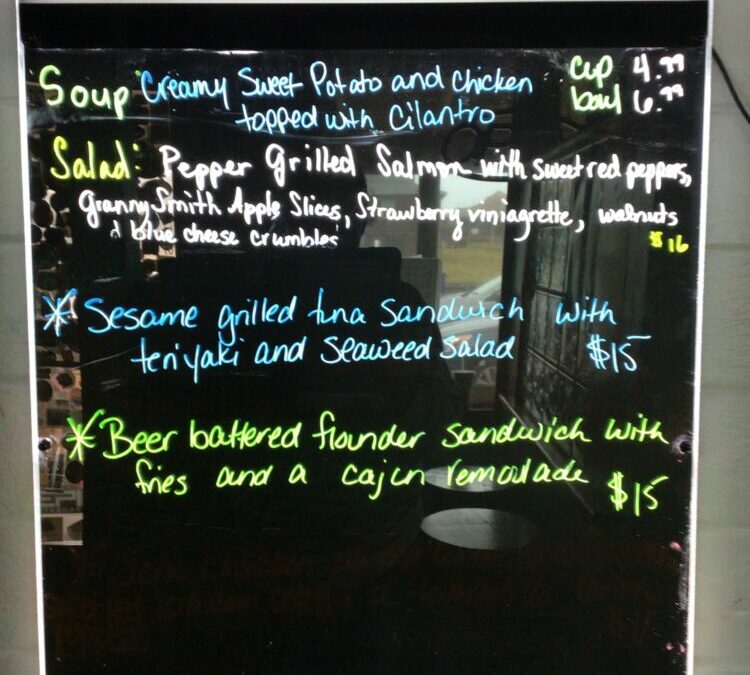 Soup Creamy Sweet Potato and Chicken cup 4.99
topped with Cilantro bowl 6.99
Salad: Pepper Grilled Salmon with sweet red peppers,
Granny Smith Apple Slices, Strawberry viniagrette, walnuts
& blue cheese crumbles $16
* Sesame grilled tuna Sandwich with
teriyaki and Seaweed Salad $15
* Beer battered flounder sandwich with
fries and a cajun remoulade $15